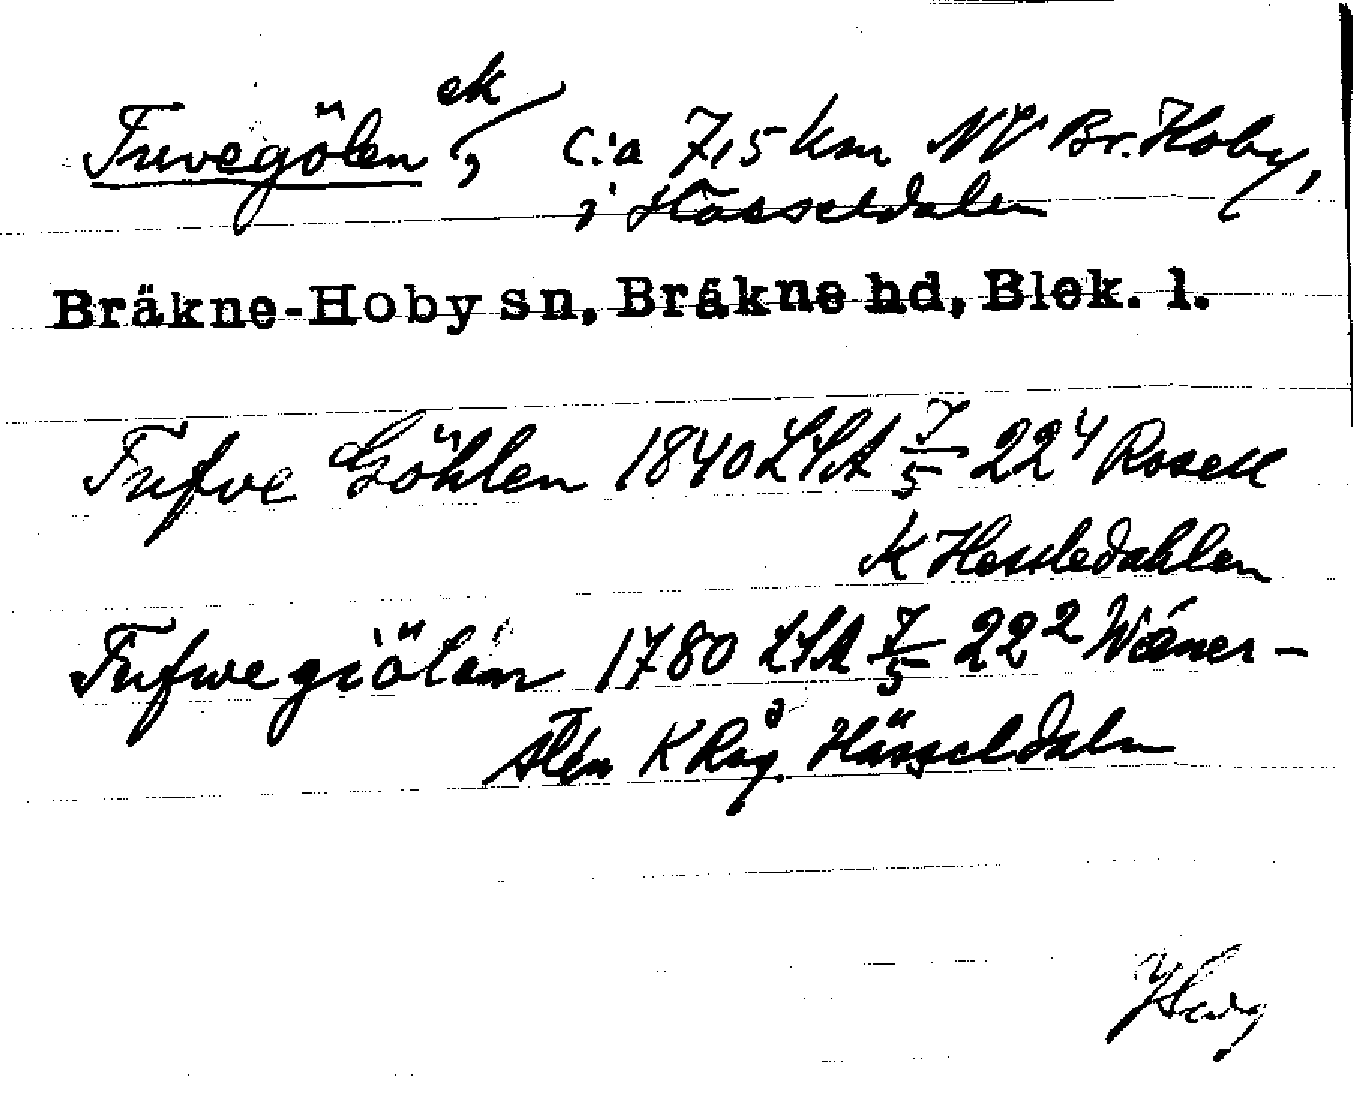 Tuvegölen, ek c:a 7,5 km NV Br. Hoby,
i Hässeldalen
Bräkne-Hoby sn, Bräkne hd, Blek. l.
Tufve Göhlen 1840 LSA 7/5 22⁴ Rosell
K Hessledahlen
Tufwegiölen 1780 LSA 7/5 22² Wäner-
Åkern K Råg. Hässeldaln